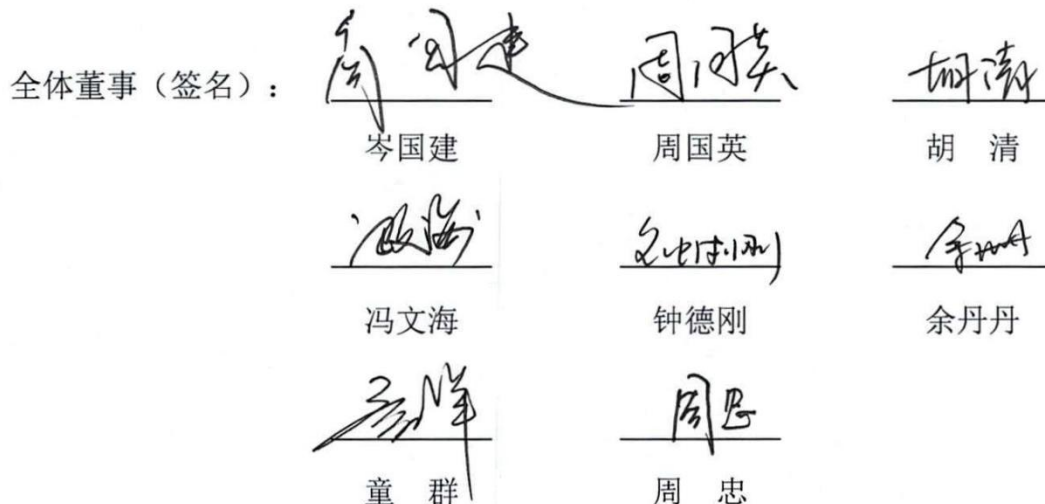 全体董事（签名）：
岑国建 周国英 胡清
岑国建 周国英 胡 清
冯文海 钟德刚 余丹丹
冯文海 钟德刚 余丹丹
童群 周忠
童 群 周 忠